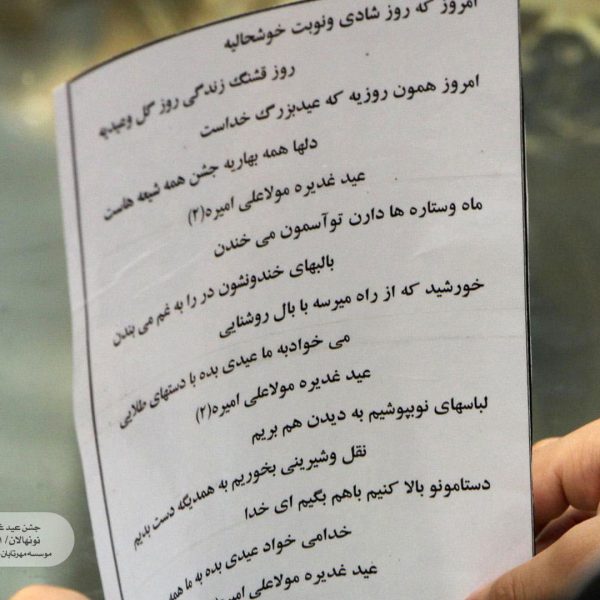 امروز که روز شادی ونوبت خوشحالیه
روز قشنگ زندگی روز گل وعیدیه
امروز همون روزیه که عیدبزرگ خداست
دلها همه بهاریه جشن همه شیعه هاست
عید غدیره مولاعلی امیره(۲)
ماه وستاره ها دارن توآسمون می خندن
بالبهای خندونشون در را به غم می بندن
خورشید که از راه میرسه با بال روشنایی
می خوادبه ما عیدی بده با دستهای طلایی
عید غدیره مولاعلی امیره(۲)
لباسهای نوبپوشیم به دیدن هم بریم
نقل وشیرینی بخوریم به همدیگه دست بدیم
دستامونو بالا کنیم باهم بگیم ای خدا
خدامی خواد عیدی بده به ما همه
عید غدیره مولاعلی
جشن عید
نونهالان/
موسسه مهرتابان